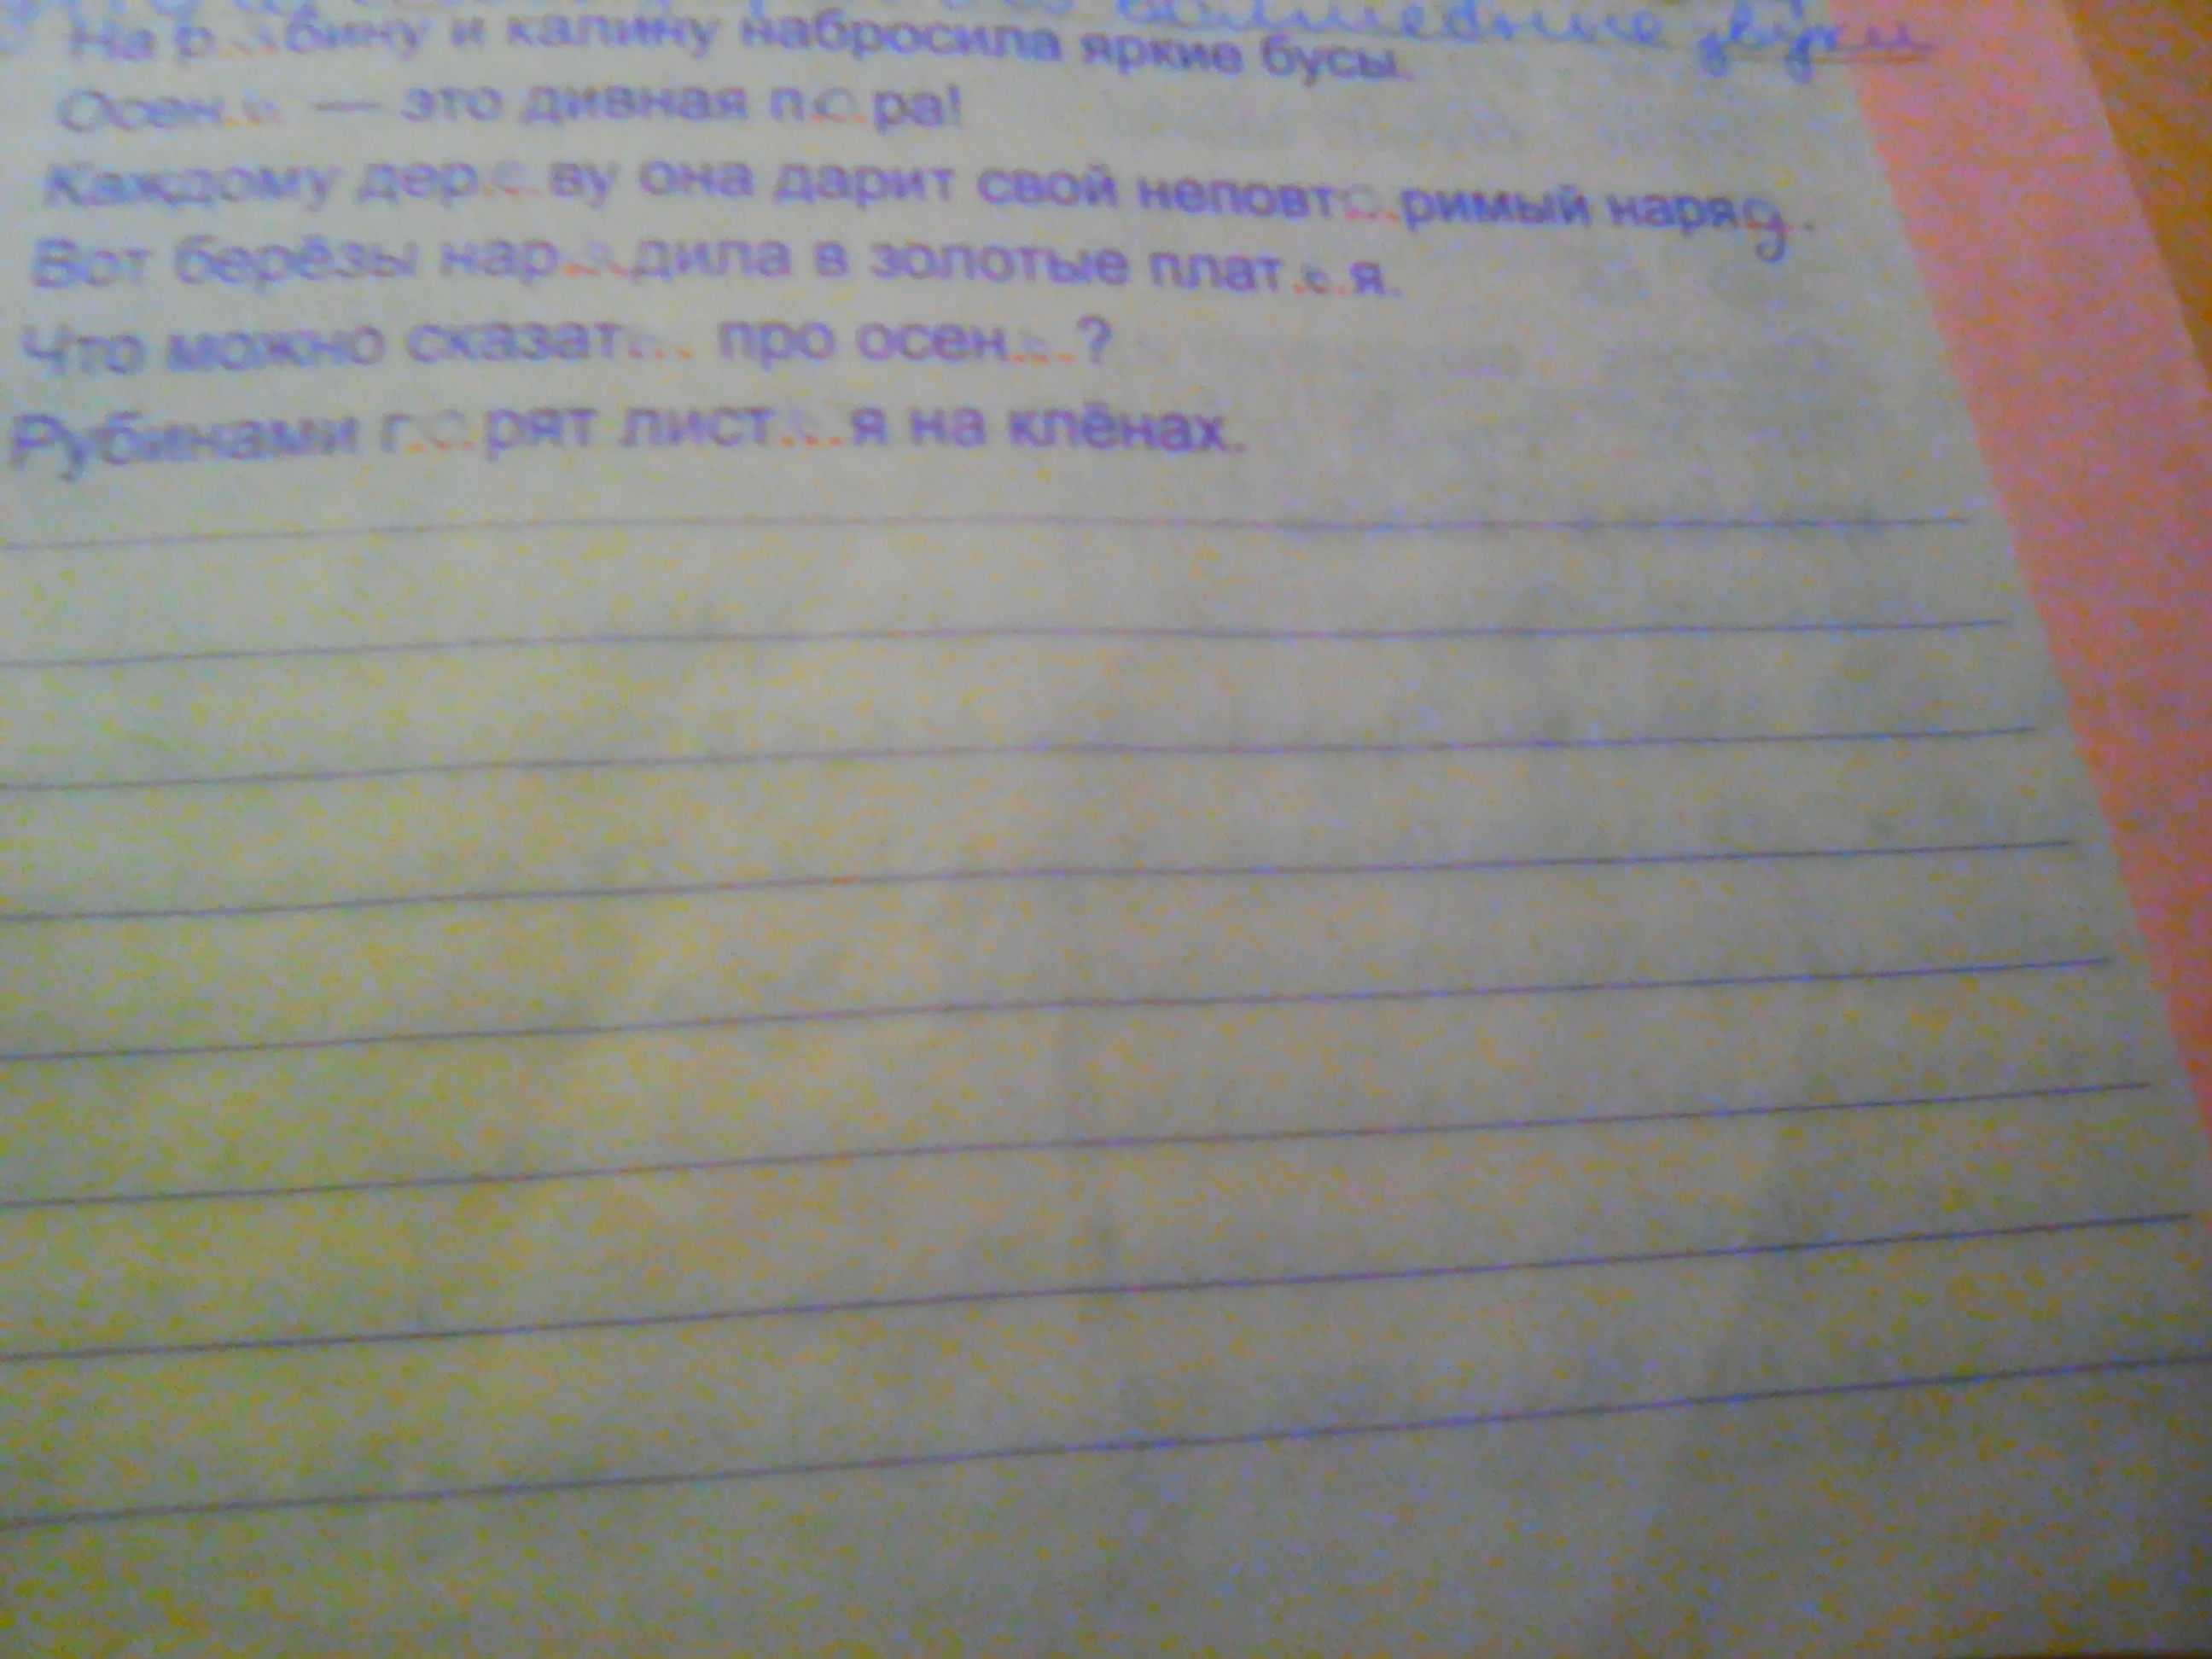 волшебные звуки
На р...бину и калину набросила яркие бусы.
Осен.ь — это дивная п.о.ра!
Каждому дер.е.ву она дарит свой неповт.о.римый наряд.
Вот берёзы нар.я.дила в золотые плат.ь.я.
Что можно сказат.ь. про осен.ь.?
Рубинами г.о.рят лист.ь.я на клёнах.